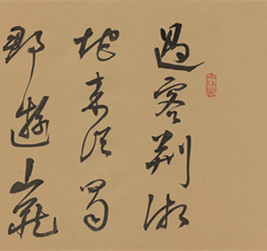 過客荆湘
地来從蜀
郡遊山